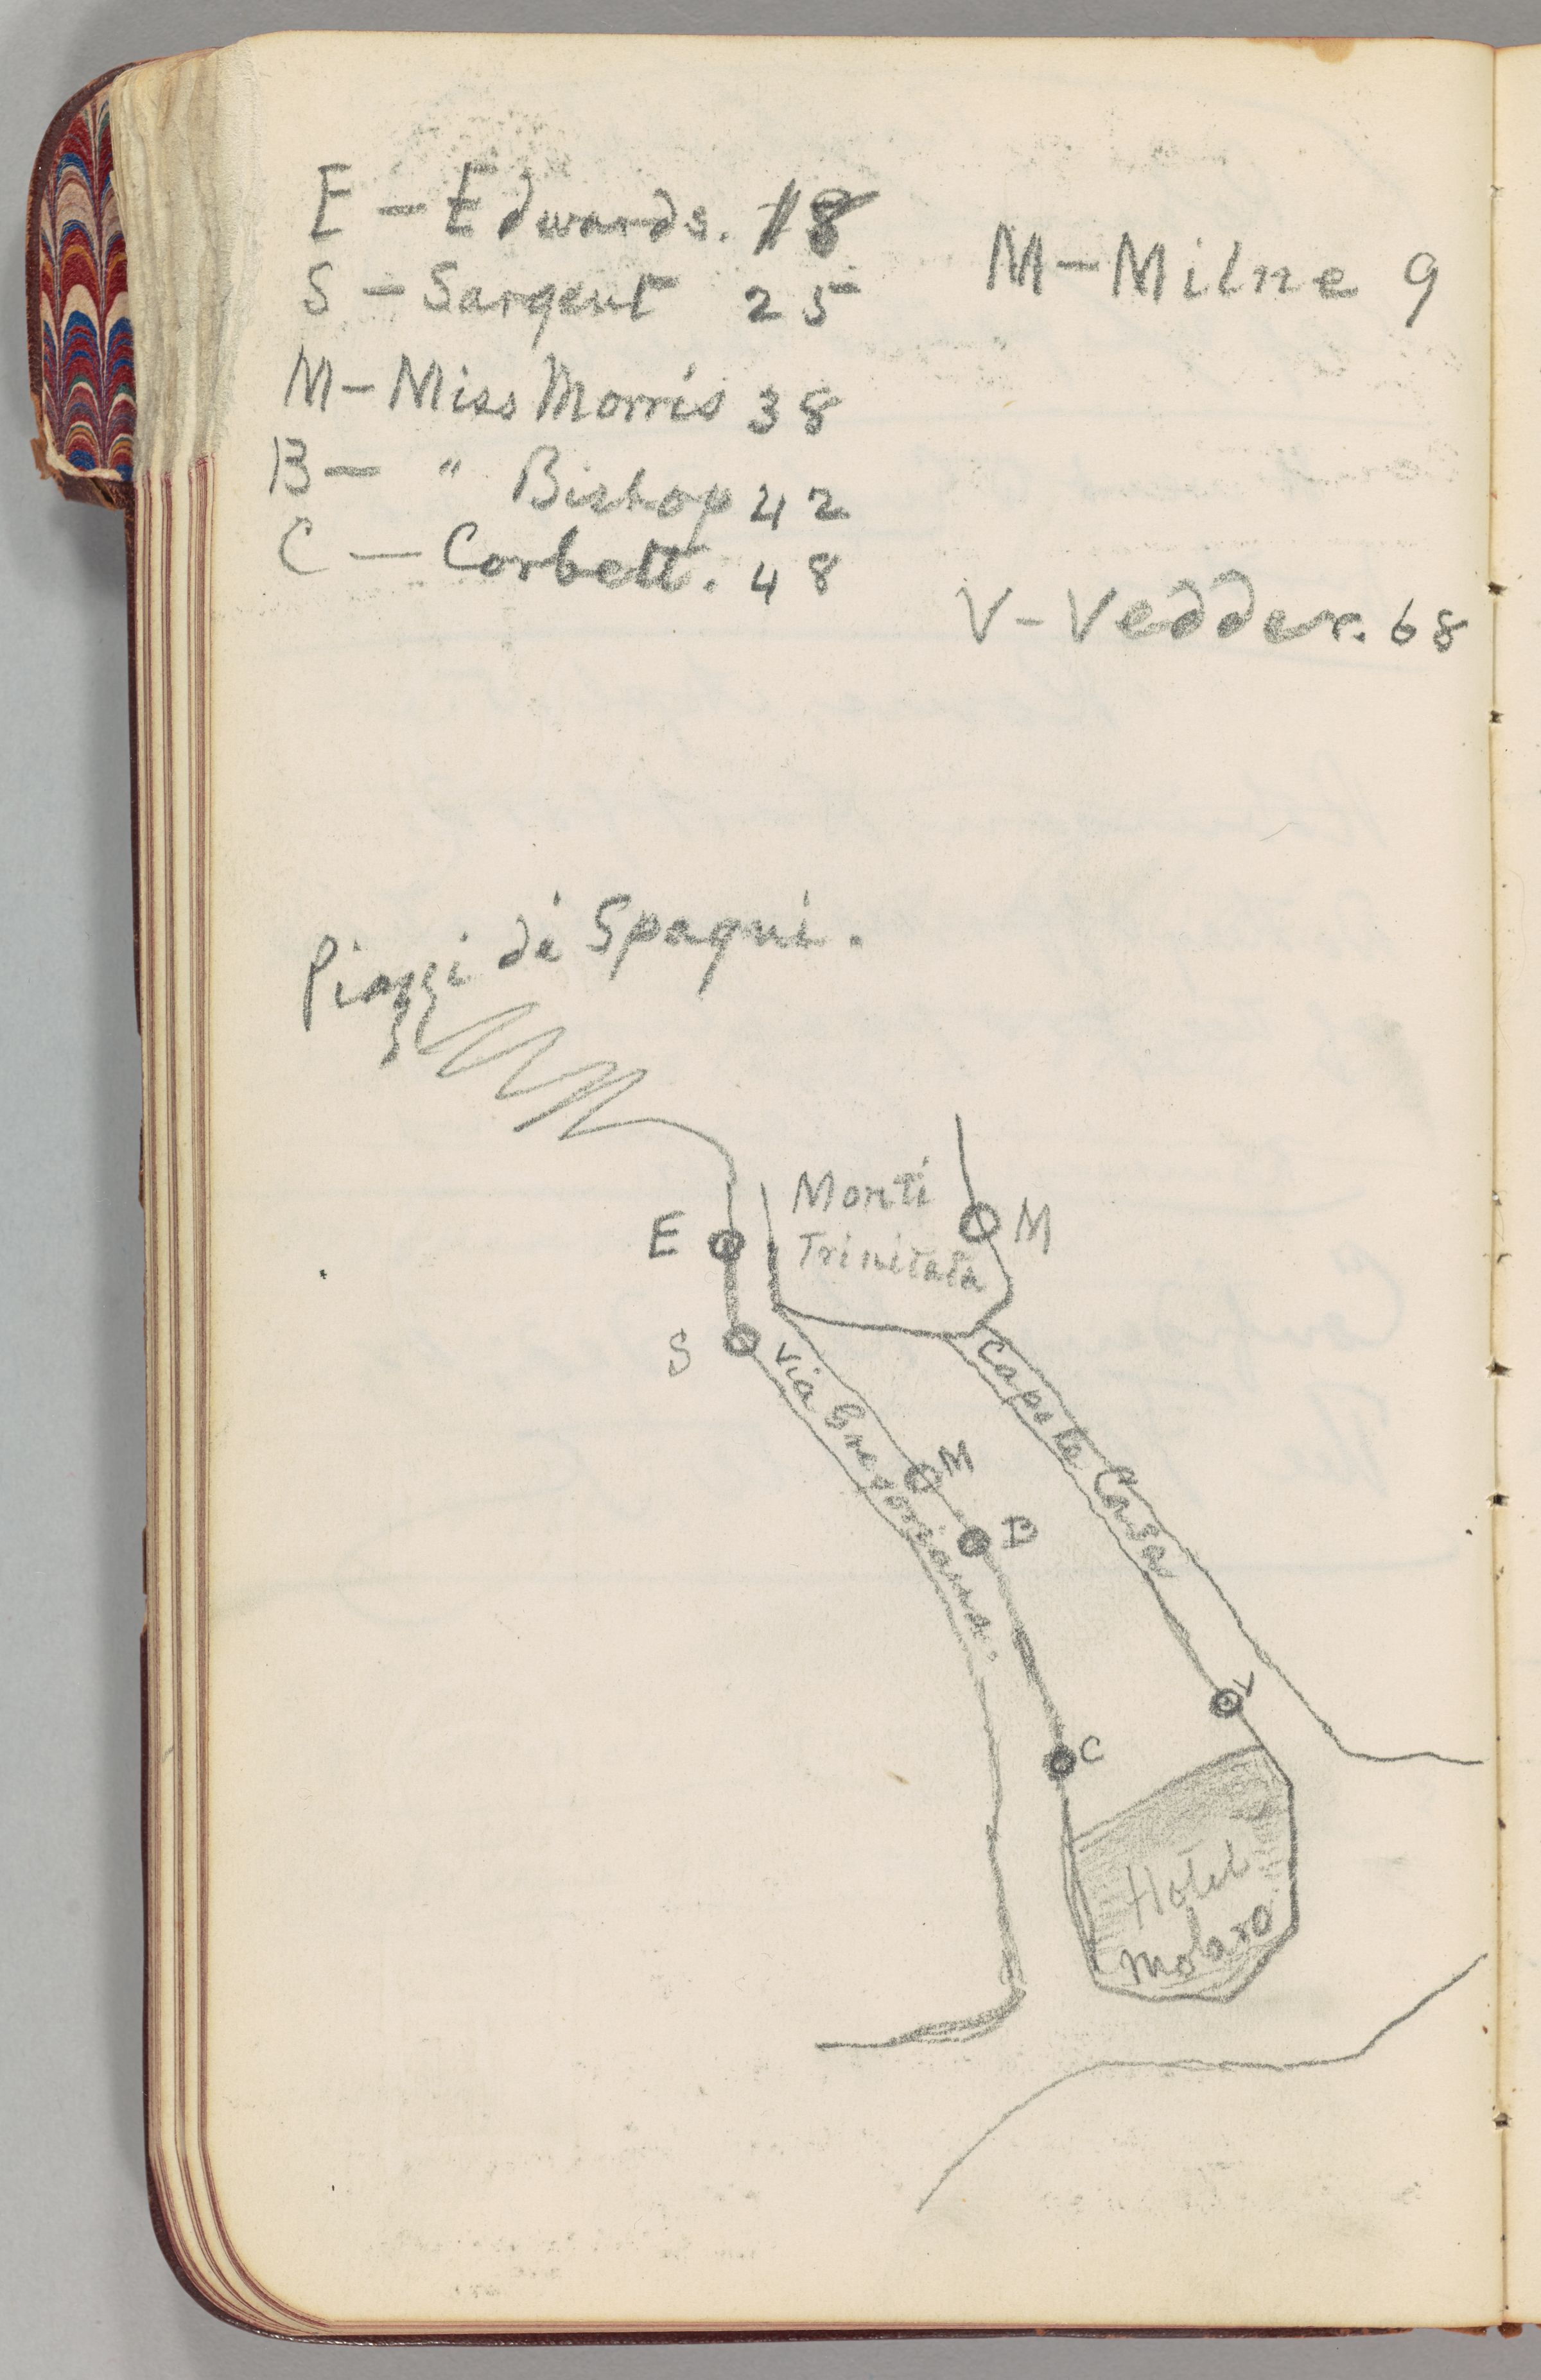 E – Edwards. 18
S – Sargent 25
M – Milne 9
M – Miss Morris 38
B – " Bishop 42
C – Corbett. 48
V – Vedder. 68
Piazzi di Spagni.
Monti
Trinitata
M
E
S
Via Gregoriana.
Capo le Casa
M
B
V
C
Hotel
Molaro